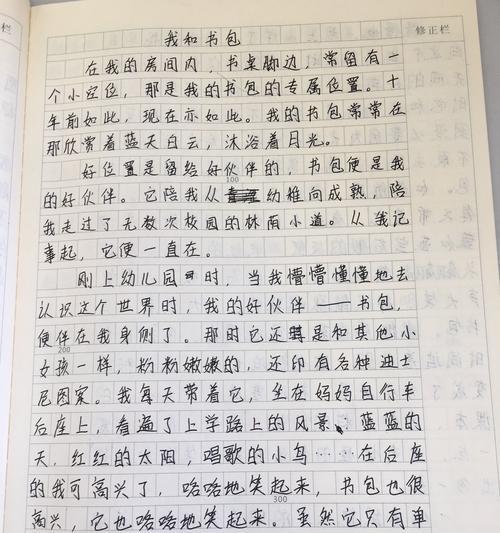 修正栏
我和书包
在我的房间内，书桌脚边，常留有一
个小空位，那是我的书包的专属位置。十
年前如此，现在亦如此。我的书包常常在
那欣赏着蓝天白云，沐浴着月光。
好位置是留给好伙伴的，书包便是我
100
的好伙伴。它陪我从幼稚向成熟，陪
我走过了无数次校园的林荫小道。从我记
事起，它便一直在。
刚上幼儿园时，当我懵懵懂懂地去
认识这个世界时，我的好伙伴——书包，
便伴在我身侧了。那时它还是和其他小
200
女孩一样，粉粉嫩嫩的，还印有各种迪士
尼图案。我每天带着它，坐在妈妈自行车
后座上，看遍了上学路上的风景，蓝蓝的
天，红红的太阳，唱歌的小鸟……在后座
的我可高兴了，咯咯地笑起来，书包也很
300
高兴，它也咯咯地笑起来。虽然它只有单